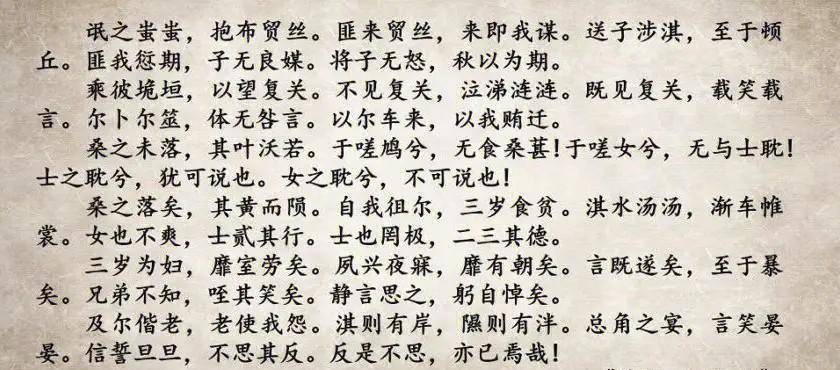 氓之蚩蚩，抱布贸丝。匪来贸丝，来即我谋。送子涉淇，至于顿
丘。匪我愆期，子无良媒。将子无怒，秋以为期。
乘彼垝垣，以望复关。不见复关，泣涕涟涟。既见复关，载笑载
言。尔卜尔筮，体无咎言。以尔车来，以我贿迁。
桑之未落，其叶沃若。于嗟鸠兮，无食桑葚！于嗟女兮，无与士耽！
士之耽兮，犹可说也。女之耽兮，不可说也！
桑之落矣，其黄而陨。自我徂尔，三岁食贫。淇水汤汤，渐车帷
裳。女也不爽，士贰其行。士也罔极，二三其德。
三岁为妇，靡室劳矣。夙兴夜寐，靡有朝矣。言既遂矣，至于暴
矣。兄弟不知，咥其笑矣。静言思之，躬自悼矣。
及尔偕老，老使我怨。淇则有岸，隰则有泮。总角之宴，言笑晏
晏。信誓旦旦，不思其反。反是不思，亦已焉哉！